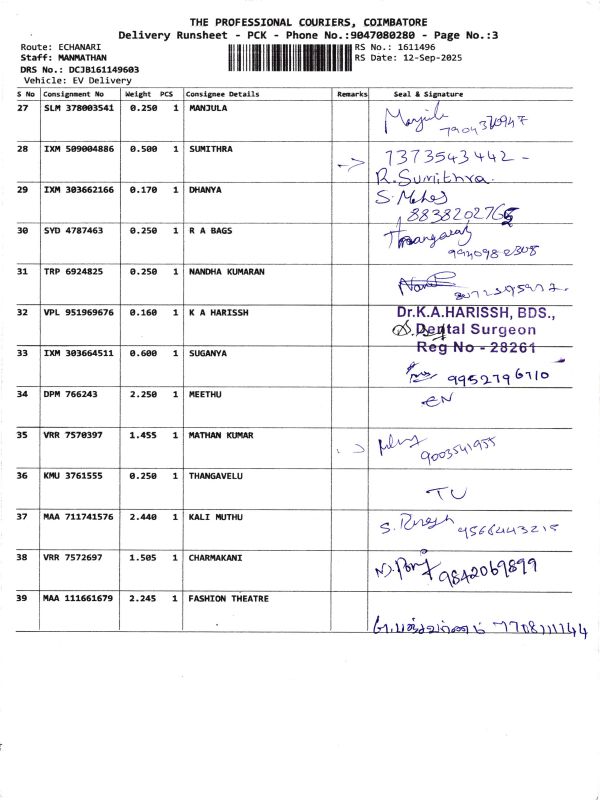 THE PROFESSIONAL COURIERS, COIMBATORE
Delivery Runsheet - PCK - Phone No.:9047080280 - Page No.:3
Route: ECHANARI
RS No.: 1611496
Staff: MANMATHAN
RS Date: 12-Sep-2025
DRS No.: DCJB161149603
Vehicle: EV Delivery
S No Consignment No Weight PCS Consignee Details Remarks Seal & Signature
27 SLM 378003541 0.250 1 MANJULA
28 IXM 509004886 0.500 1 SUMITHRA
7373543442 -
R.Sumithra.
29 IXM 303662166 0.170 1 DHANYA
30 SYD 4787463 0.250 1 R A BAGS
31 TRP 6924825 0.250 1 NANDHA KUMARAN
32 VPL 951969676 0.160 1 K A HARISSH
Dr.K.A.HARISSH, BDS.,
Dental Surgeon
Reg No - 28261
33 IXM 303664511 0.600 1 SUGANYA
9952796710
34 DPM 766243 2.250 1 MEETHU
EN
35 VRR 7570397 1.455 1 MATHAN KUMAR
9003541955
36 KMU 3761555 0.250 1 THANGAVELU
TU
37 MAA 711741576 2.440 1 KALI MUTHU
38 VRR 7572697 1.505 1 CHARMAKANI
9842069899
39 MAA 111661679 2.245 1 FASHION THEATRE